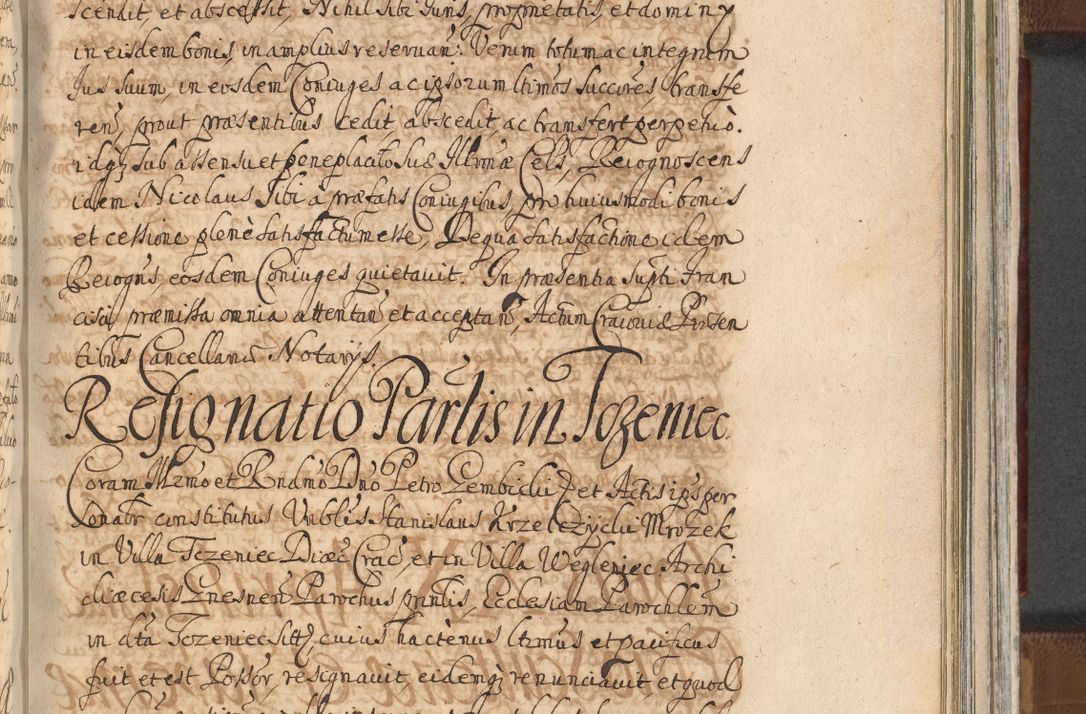 scendit, et abscessit, Nihil sibi Juris, proprietatis, et dominy
in eisdem bonis, in amplius reservan: Verum totum ac integrum
Jus suum, in eosdem Coniuges ac ipsorum ltimos succres, transfe
rens, prout præsentibus cedit, abscedit, ac transfert perpetuo.
idq; sub assensu et beneplacito Suæ Illrmæ Cels, Recognoscens
idem Nicolaus sibi a præfatis Coniugibus pro huiusmodi bonis
et cessione plene satisfactum esse, De qua satisfactione idem
Recogns, eosdem Coniuges quietavit. In præsentia supti Fran
cisci, præmissa omnia attentan, et acceptan, Actum Cracoviæ Præsen
tibus Cancellariæ Notarys.
Resignatio Partis in Tczeniec.
Coram Illrmo et Rndmo Dno Petro Gembicki et Actis ips per
sonalr constitutus Vnblis Stanislaus Krzelczycki Mrozek
in Villa Tczeniec Diæc Crac, et in Villa Wegleniec Archi
diæcesis Gnesnen Parochus, printis, Ecclesiam Parochlem
in dta Tczeniec sitt, cuius hactenus ltimus et pacificus
fuit et est Possor, resignavit, eidemq; renunciavit et quod